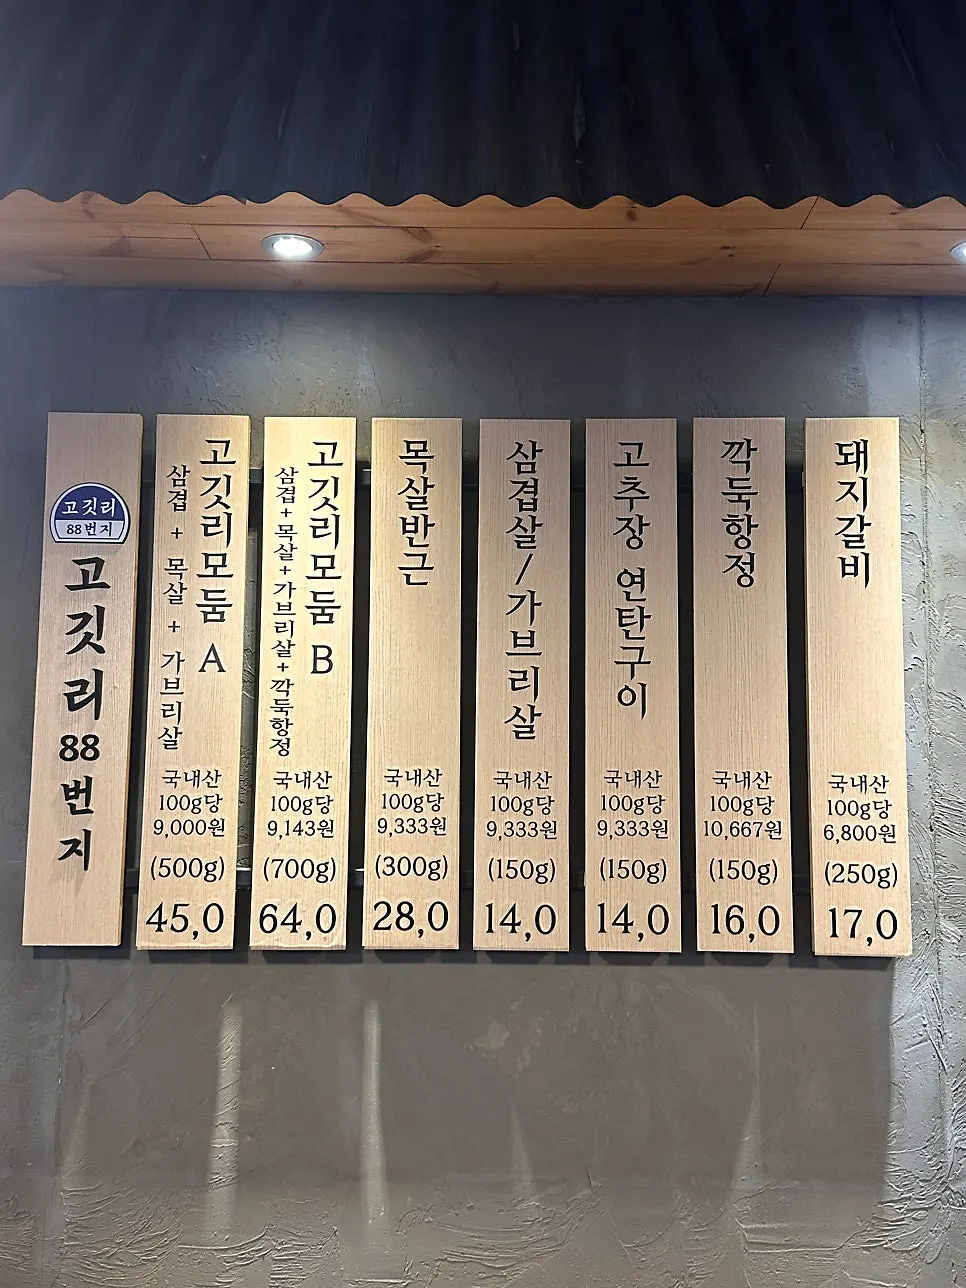 고깃리
88번지
고깃리 88번지
고깃리모둠 A
삼겹 + 목살 + 가브리살
국내산
100g당
9,000원
(500g)
45,0
고깃리모둠 B
삼겹+목살+가브리살+깍둑항정
국내산
100g당
9,143원
(700g)
64,0
목살반근
국내산
100g당
9,333원
(300g)
28,0
삼겹살/가브리살
국내산
100g당
9,333원
(150g)
14,0
고추장 연탄구이
국내산
100g당
9,333원
(150g)
14,0
깍둑항정
국내산
100g당
10,667원
(150g)
16,0
돼지갈비
국내산
100g당
6,800원
(250g)
17,0